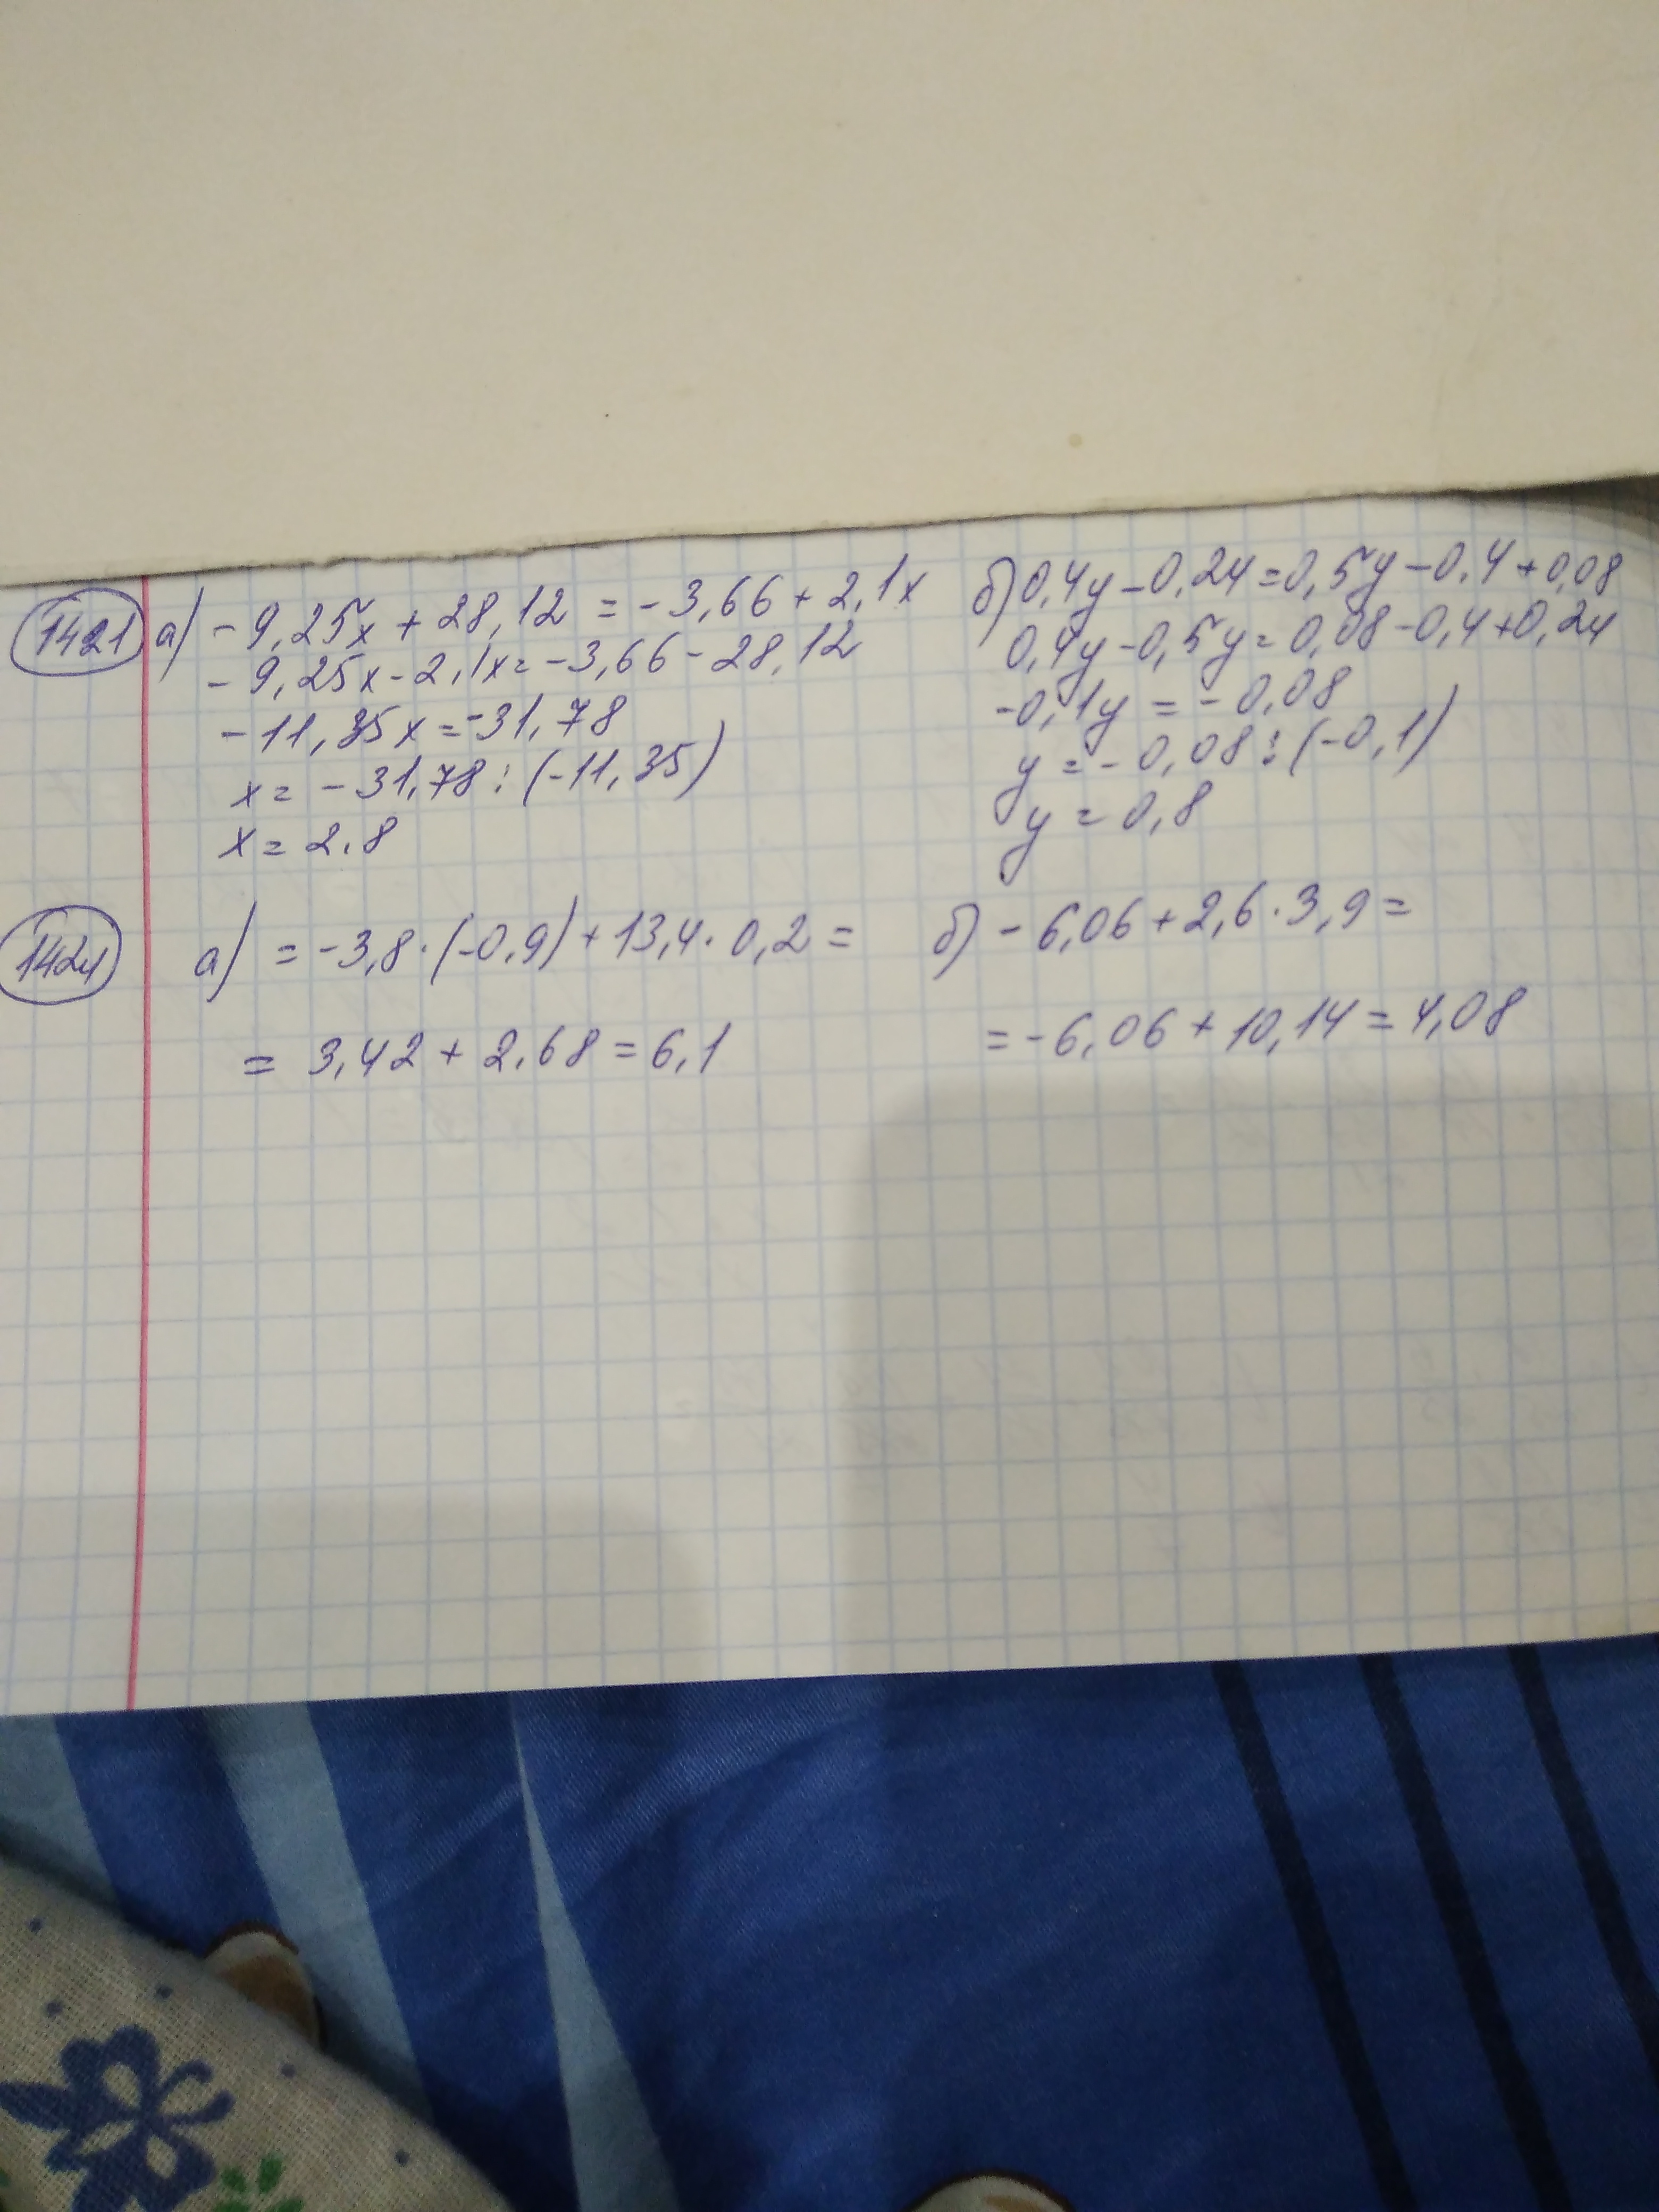 1421 а) -9,25x + 28,12 = -3,66 + 2,1x
-9,25x - 2,1x = -3,66 - 28,12
-11,35x = -31,78
x = -31,78 : (-11,35)
x = 2,8
б) 0,4y - 0,24 = 0,5y - 0,4 + 0,08
0,4y - 0,5y = 0,08 - 0,4 + 0,24
-0,1y = -0,08
y = -0,08 : (-0,1)
y = 0,8
1424 а) = -3,8 · (-0,9) + 13,4 · 0,2 =
= 3,42 + 2,68 = 6,1
б) -6,06 + 2,6 · 3,9 =
= -6,06 + 10,14 = 4,08